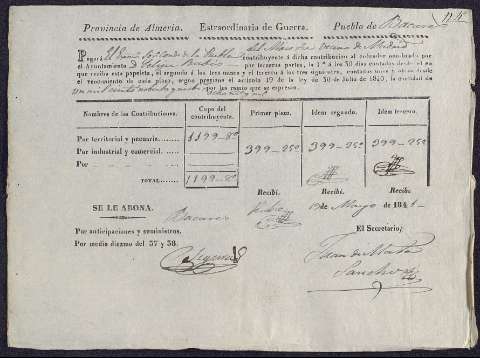 Provincia de Almeria. Estraordinaria de Guerra. Pueblo de Bacares
Pagará El Señor del Maso vecino de Madrid
contribuyente á dicha contribucion al cobrador nombrado por
el Ayuntamiento D. Felipe por terceras partes, la 1.ª á los 30 dias contados desde el en
que reciba esta papeleta, el segundo á los tres meses y el tercero á los tres siguientes, contados unos y otros desde
el vencimiento de cada plazo, segun previene el artículo 19 de la ley de 30 de Julio de 1840, la cantidad de
un mil ciento noventa y por las cuotas que se espresan.
Nombres de las Contribuciones. Cupo del contribuyente. Primer plazo. Idem segundo. Idem tercero.
Por territorial y pecuaria. 1199-8
Por industrial y comercial. 399-25 399-25 399-25
Por
TOTAL. 1199-8
Recibí. Recibí. Recibí
SE LE ABONA. Bacares de Mayo de 1841
Por anticipaciones y suministros.
Por medio diezmo del 37 y 38.
El Secretario,
Juan de Mata
Sanchez